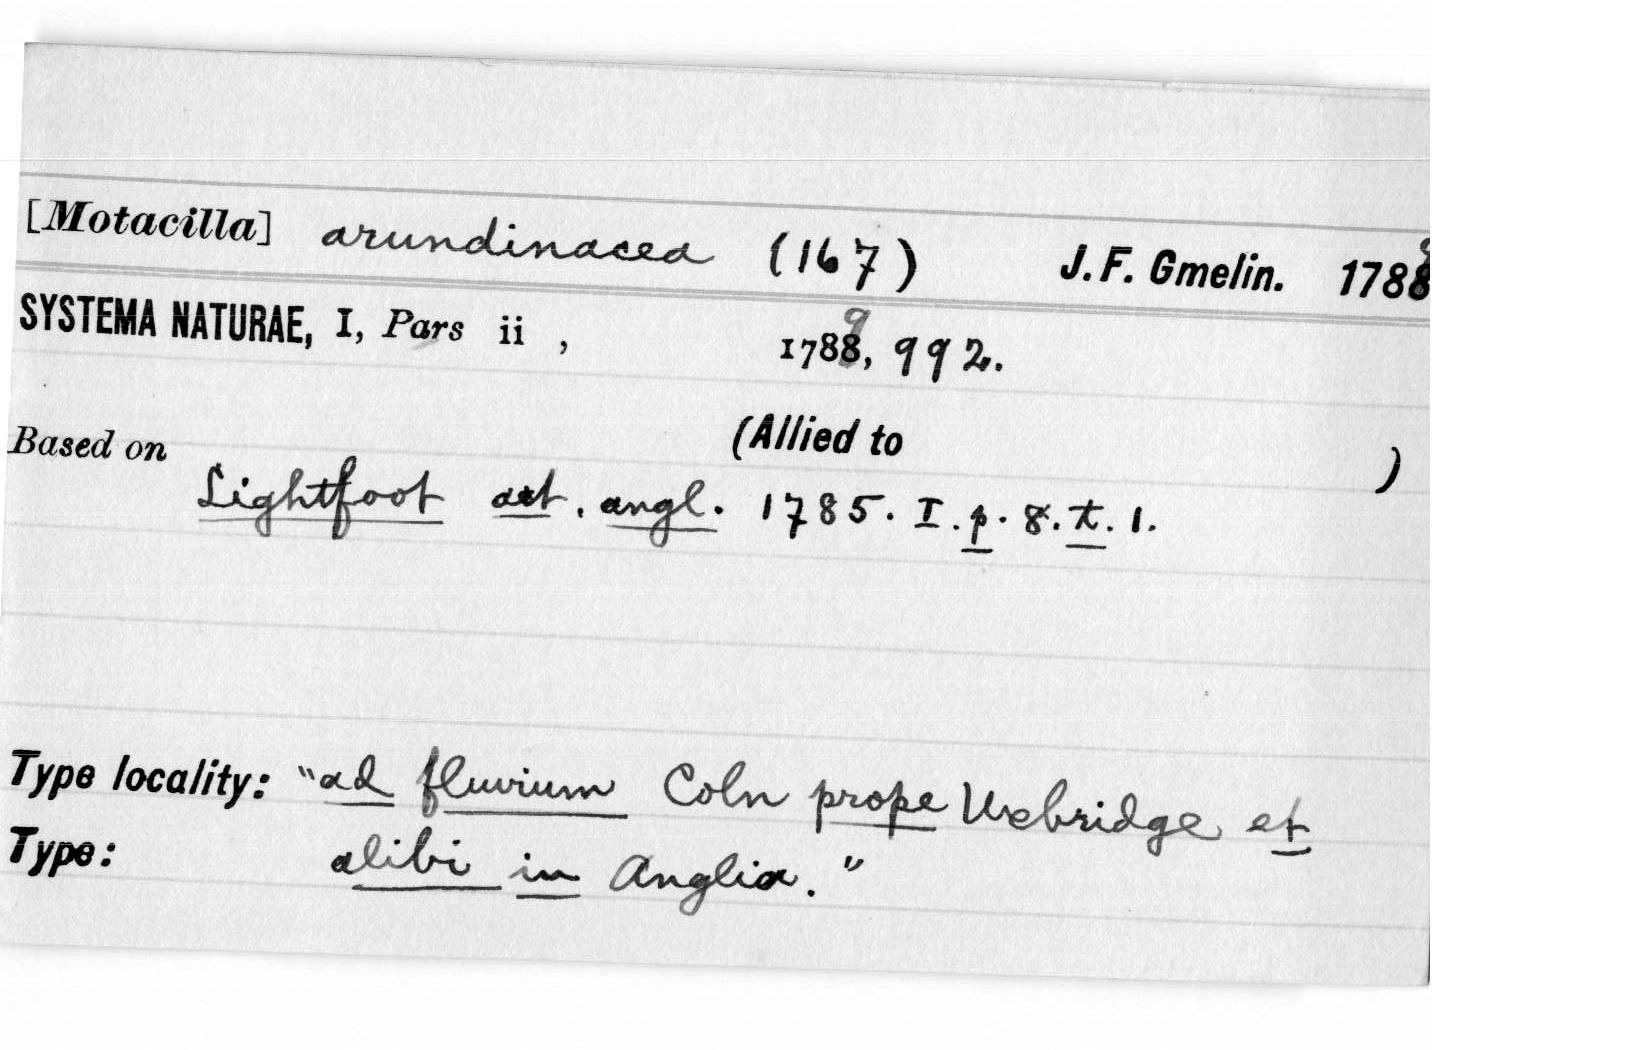 [Motacilla] arundinacea (167) J. F. Gmelin. 1789
SYSTEMA NATURAE, I, Pars ii , 1789, 992.
Based on (Allied to )
Lightfoot act. angl. 1785. I. p. 8. t. 1.
Type locality: "ad fluvium Coln prope Uxbridge et
Type: alibi in Anglia."